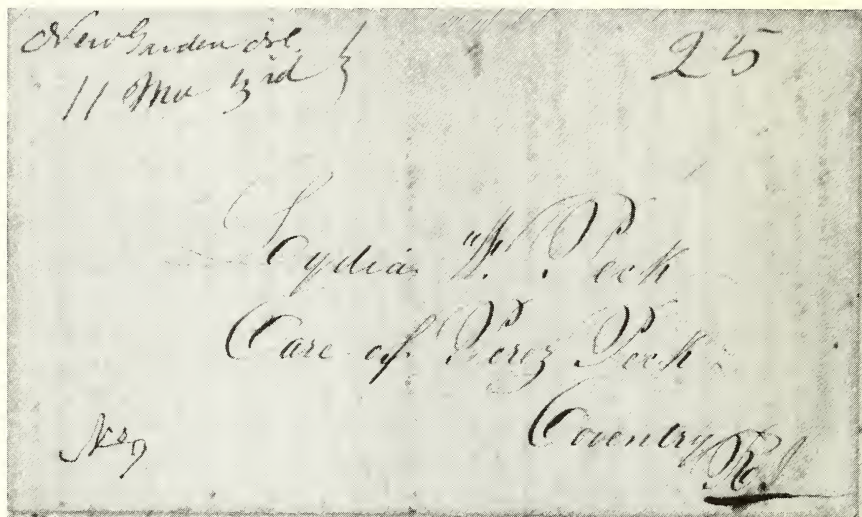 New Garden
11 Mo 3rd
25
Lydia W. Peck
Care of Perez Peck
Coventry
R.I
No 9